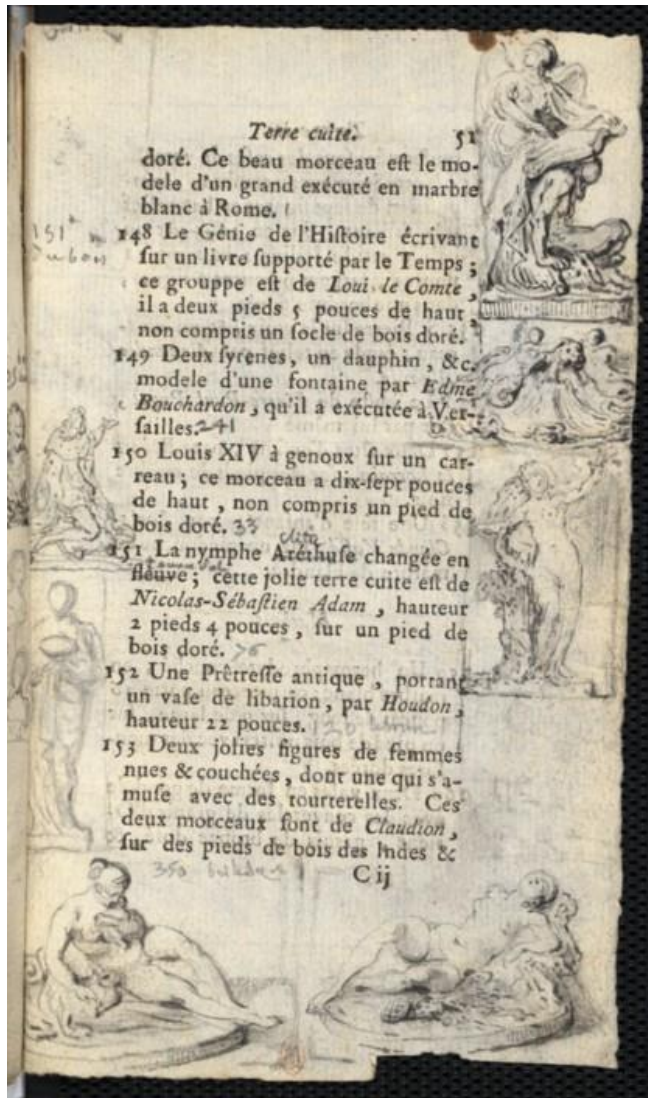 Terre cuite. 51
doré. Ce beau morceau eſt le mo-
dele d'un grand exécuté en marbre
blanc à Rome.
148 Le Génie de l'Hiſtoire écrivant
ſur un livre ſupporté par le Temps ;
ce grouppe eſt de Loui le Comte ,
il a deux pieds 5 pouces de haut ,
non compris un ſocle de bois doré.
149 Deux ſyrenes , un dauphin , &c.
modele d'une fontaine par Edme
Bouchardon , qu'il a exécutée à Ver-
ſailles. 241
150 Louis XIV à genoux ſur un car-
reau ; ce morceau a dix-ſept pouces
de haut , non compris un pied de
bois doré. 33
151 La nymphe Aréthuſe changée en
fleuve ; cette jolie terre cuite eſt de
Nicolas-Sébaſtien Adam , hauteur
2 pieds 4 pouces , ſur un pied de
bois doré.
152 Une Prêtreſſe antique , portant
un vaſe de libation , par Houdon ,
hauteur 22 pouces. 120
153 Deux jolies figures de femmes
nues & couchées , dont une qui s'a-
muſe avec des tourterelles. Ces
deux morceaux ſont de Claudion ,
ſur des pieds de bois des Indes &
350
C ij